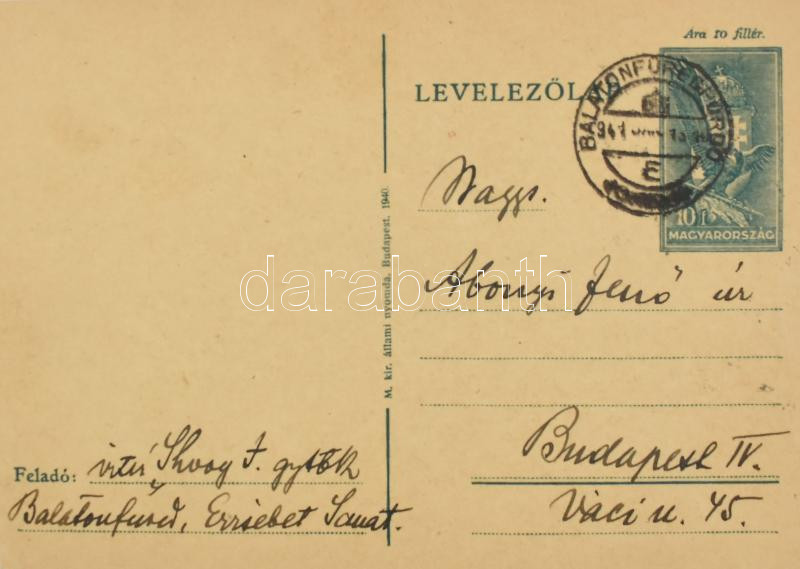 Ára 10 fillér.
LEVELEZŐLAP
BALATONFÜRED FÜRDŐ
941
10 f
MAGYARORSZÁG
Nagys.
Abonyi Jenő úr
Budapest IV.
Váci u. 45.
M. kir. állami nyomda, Budapest. 1940.
Feladó: vitéz Shvoy I. gytbk
Balatonfüred, Erzsébet Sanat.
darabanth